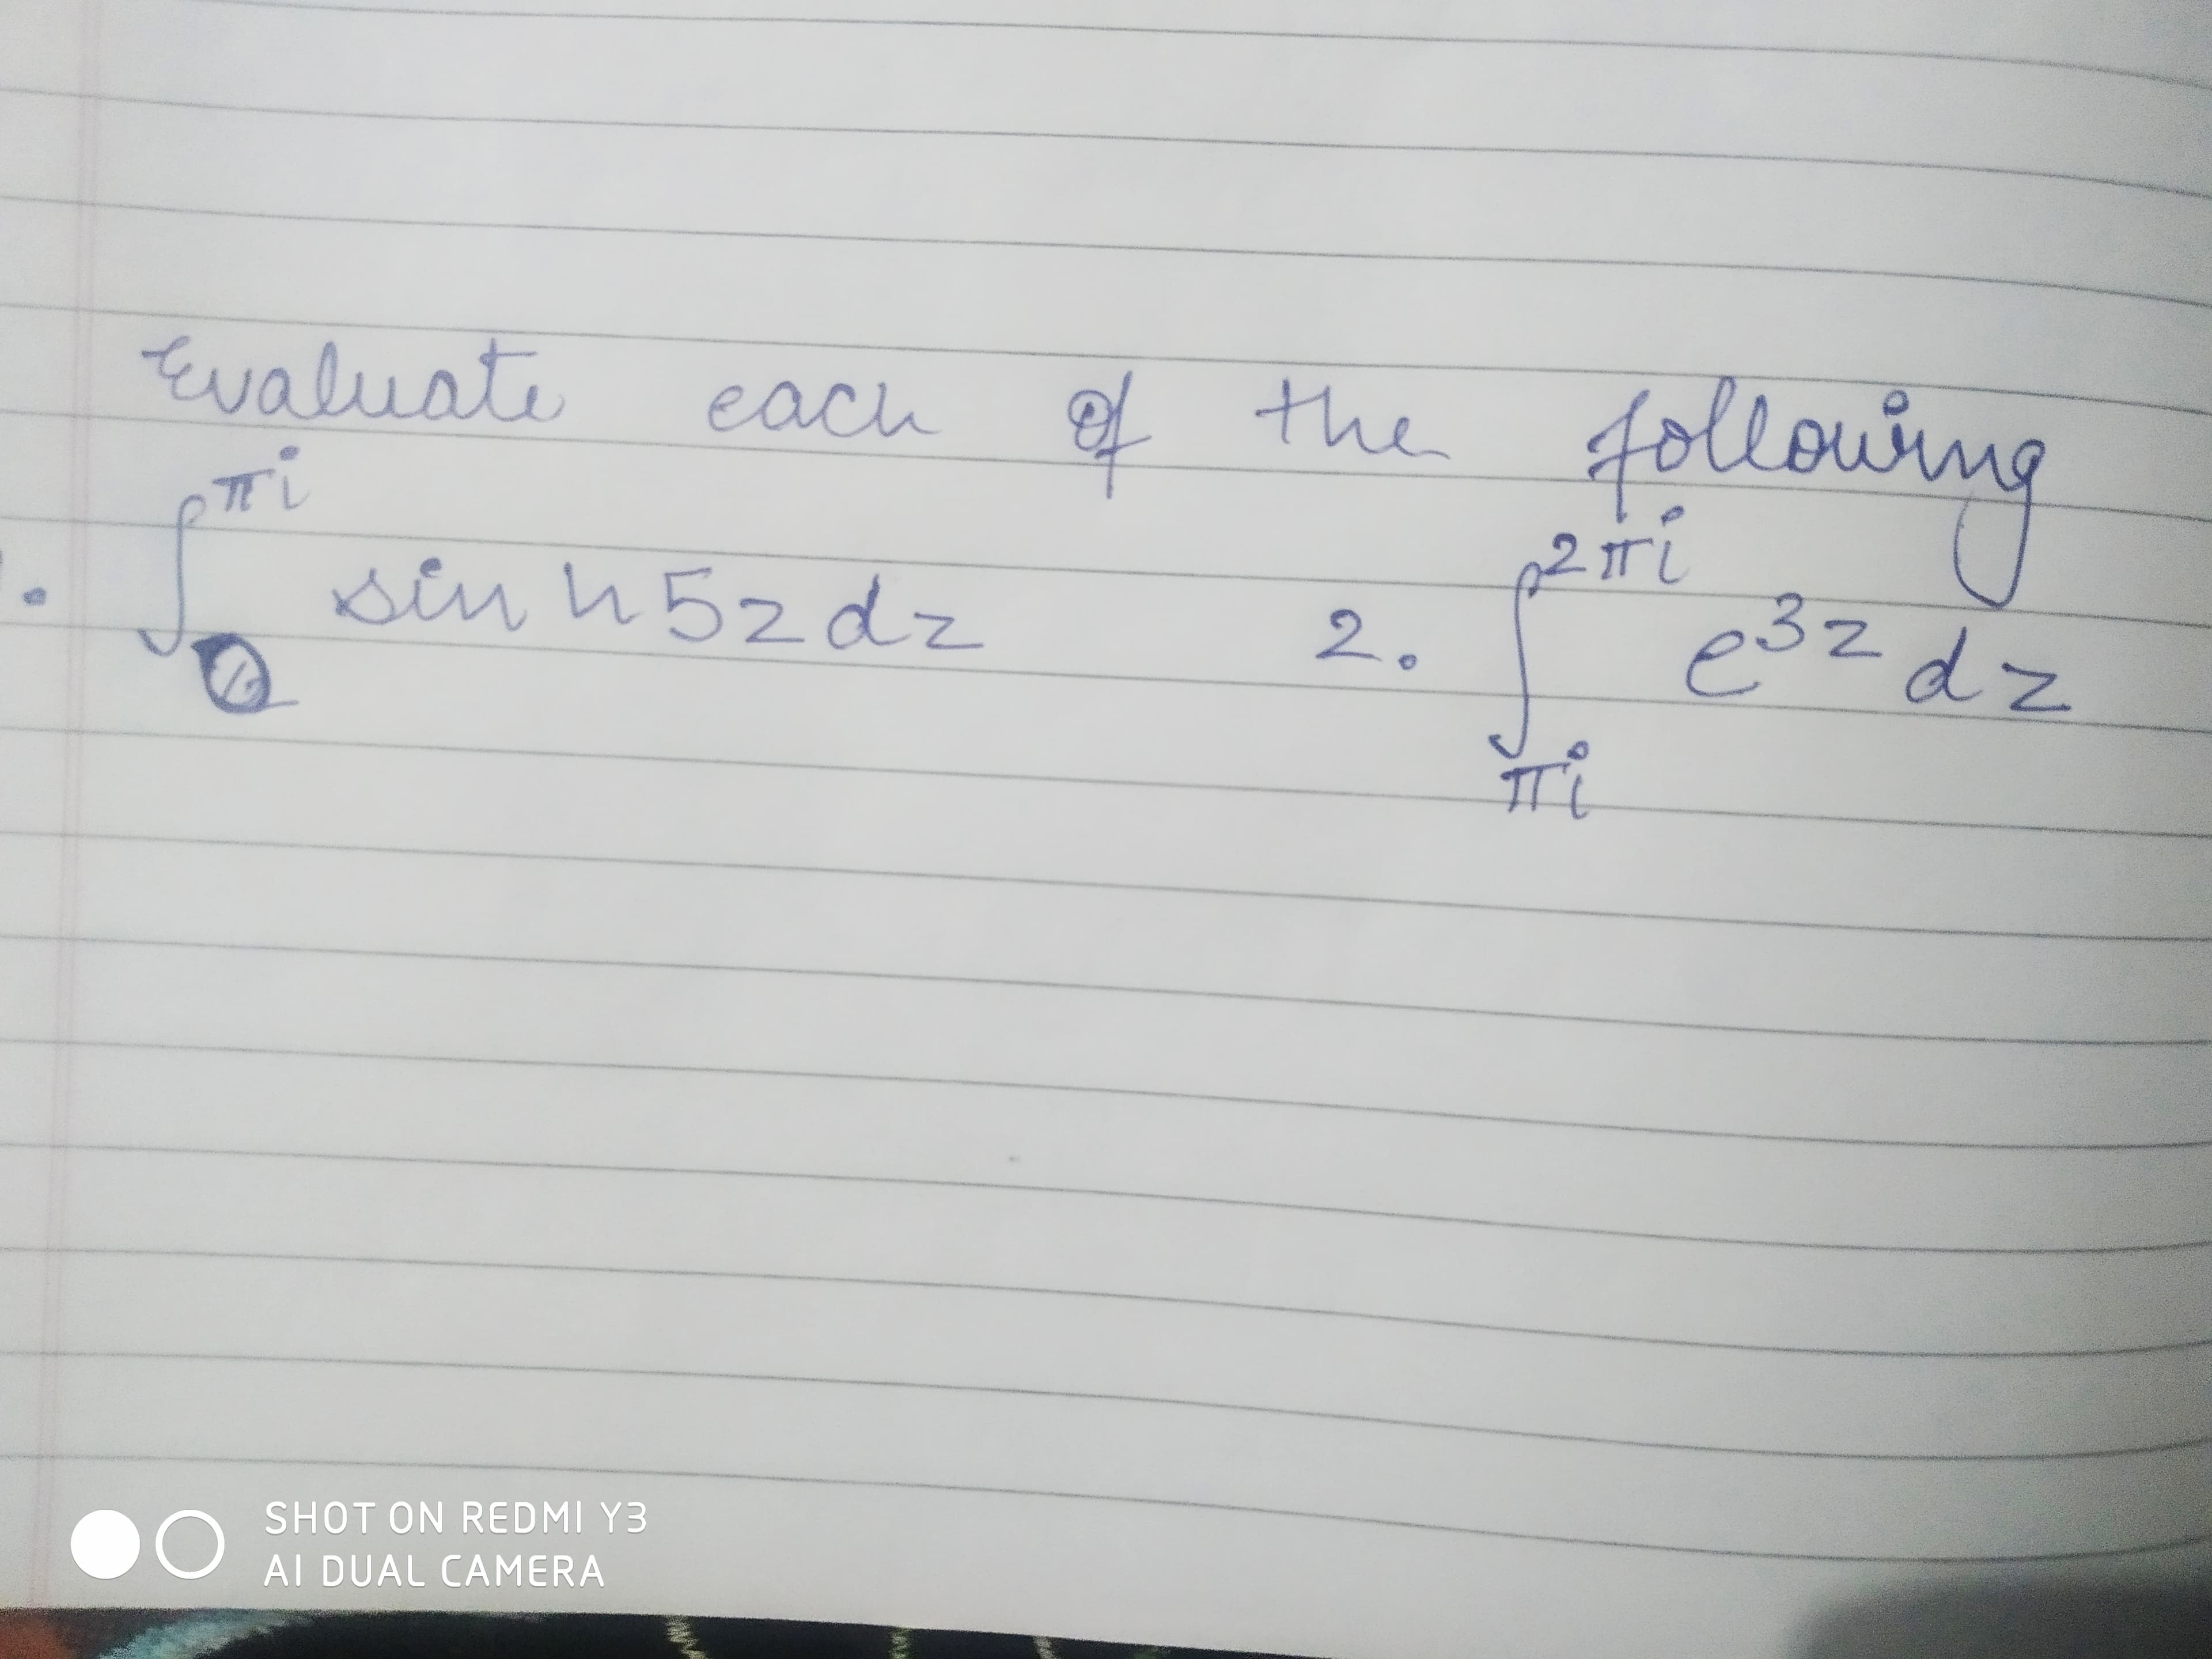 Evaluate each of the following
. ∫₀^πi sin h 5z dz 2. ∫_πi^2πi e^3z dz
SHOT ON REDMI Y3
AI DUAL CAMERA